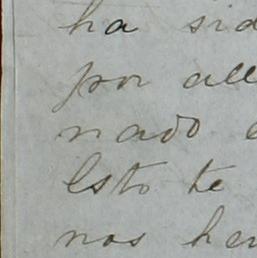 ha sid
por all
nado e
Esto te
nos her